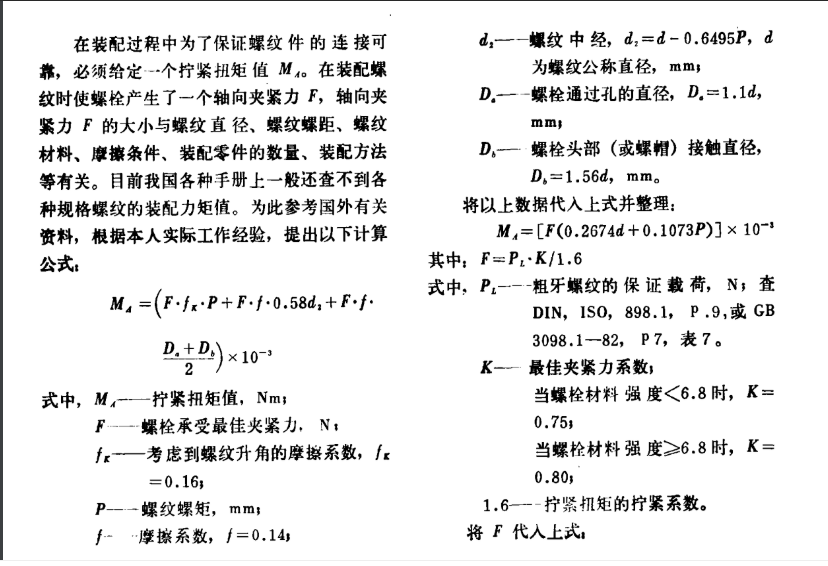 在装配过程中为了保证螺纹件的连接可
靠，必须给定一个拧紧扭矩值 M_A。在装配螺
纹时使螺栓产生了一个轴向夹紧力 F，轴向夹
紧力 F 的大小与螺纹直径、螺纹螺距、螺纹
材料、摩擦条件、装配零件的数量、装配方法
等有关。目前我国各种手册上一般还查不到各
种规格螺纹的装配力矩值。为此参考国外有关
资料，根据本人实际工作经验，提出以下计算
公式：
M_A=(F·f_K·P+F·f·0.58d₂+F·f·
(D_a+D_b)/2)×10⁻³
式中，M_A——拧紧扭矩值，Nm；
F——螺栓承受最佳夹紧力，N；
f_K——考虑到螺纹升角的摩擦系数，f_K
=0.16；
P——螺纹螺矩，mm；
f——摩擦系数，f=0.14；
d₂——螺纹中经，d₂=d-0.6495P，d
为螺纹公称直径，mm；
D_a——螺栓通过孔的直径，D_a=1.1d，
mm；
D_b——螺栓头部（或螺帽）接触直径，
D_b=1.56d，mm。
将以上数据代入上式并整理：
M_A=[F(0.2674d+0.1073P)]×10⁻³
其中：F=P_L·K/1.6
式中，P_L——粗牙螺纹的保证载荷，N；查
DIN，ISO，898.1，P.9,或 GB
3098.1—82，P7，表7。
K——最佳夹紧力系数；
当螺栓材料强度<6.8时，K=
0.75；
当螺栓材料强度≥6.8时，K=
0.80；
1.6——拧紧扭矩的拧紧系数。
将 F 代入上式：